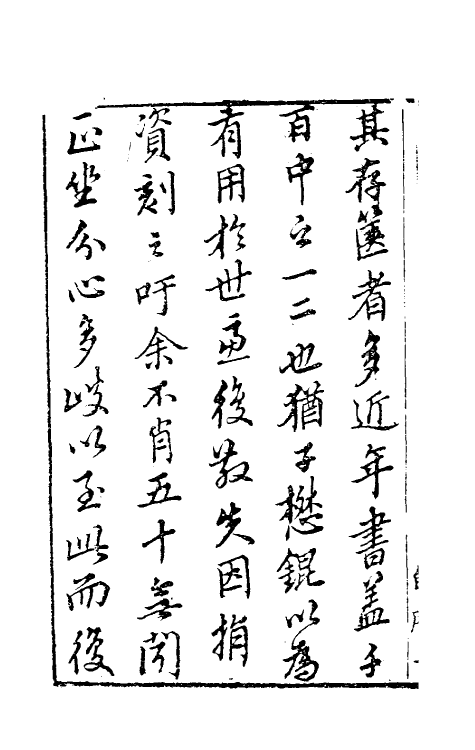 其存篋者多近年書盖千
百中之一二也猶子懋錕以為
有用於世慮後散失因捐
資刻之吁余不肖五十無聞
正坐分心多歧以至此而後